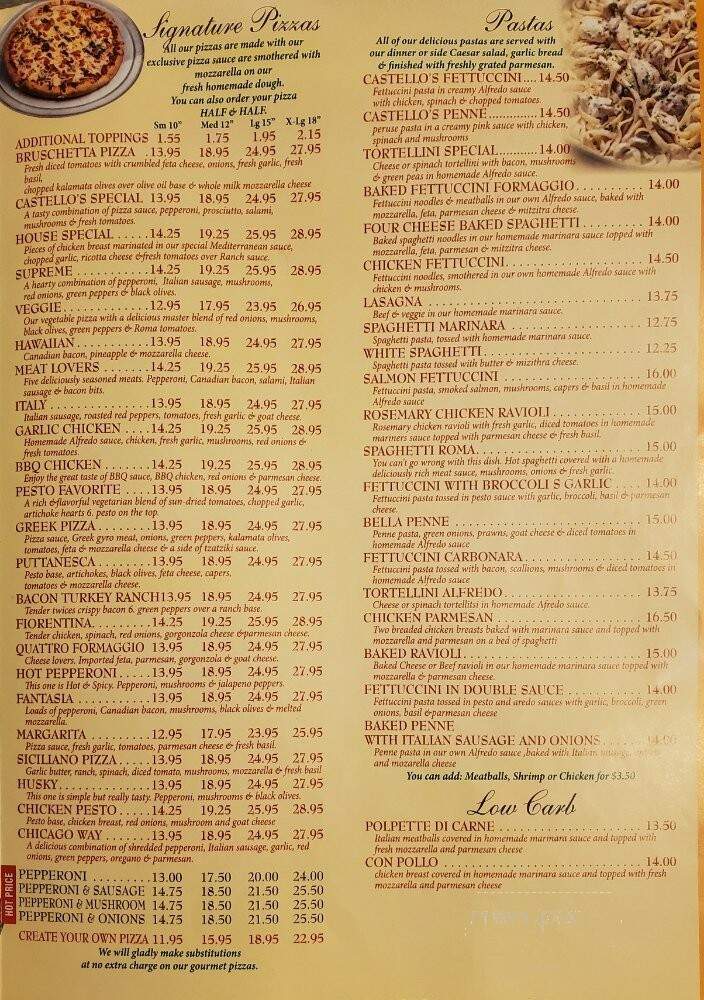 Signature Pizzas
All our pizzas are made with our
exclusive pizza sauce are smothered with
mozzarella on our
fresh homemade dough.
You can also order your pizza
HALF & HALF.
Sm 10" Med 12" Lg 15" X-Lg 18"
ADDITIONAL TOPPINGS 1.55 1.75 1.95 2.15
BRUSCHETTA PIZZA .13.95 18.95 24.95 27.95
Fresh diced tomatoes with crumbled feta cheese, onions, fresh garlic, fresh
basil,
chopped kalamata olives over olive oil base & whole milk mozzarella cheese
CASTELLO'S SPECIAL 13.95 18.95 24.95 27.95
A tasty combination of pizza sauce, pepperoni, prosciutto, salami,
mushrooms & fresh tomatoes.
HOUSE SPECIAL .....14.25 19.25 25.95 28.95
Pieces of chicken breast marinated in our special Mediterranean sauce,
chopped garlic, ricotta cheese &fresh tomatoes over Ranch sauce.
SUPREME ..........14.25 19.25 25.95 28.95
A hearty combination of pepperoni, Italian sausage, mushrooms,
red onions, green peppers & black olives.
VEGGIE ...........12.95 17.95 23.95 26.95
Our vegetable pizza with a delicious master blend of red onions, mushrooms,
black olives, green peppers & Roma tomatoes.
HAWAIIAN..........13.95 18.95 24.95 27.95
Canadian bacon, pineapple & mozzarella cheese.
MEAT LOVERS .......14.25 19.25 25.95 28.95
Five deliciously seasoned meats. Pepperoni, Canadian bacon, salami, Italian
sausage & bacon bits.
ITALY .............13.95 18.95 24.95 27.95
Italian sausage, roasted red peppers, tomatoes, fresh garlic & goat cheese.
GARLIC CHICKEN ....14.25 19.25 25.95 28.95
Homemade Alfredo sauce, chicken, fresh garlic, mushrooms, red onions &
fresh tomatoes
BBQ CHICKEN .......14.25 19.25 25.95 28.95
Enjoy the great taste of BBQ sauce, BBQ chicken, red onions & parmesan cheese.
PESTO FAVORITE ....13.95 18.95 24.95 27.95
A rich &flavorful vegetarian blend of sun-dried tomatoes, chopped garlic,
artichoke hearts 6. pesto on the top.
GREEK PIZZA ........13.95 18.95 24.95 27.95
Pizza sauce, Greek gyro meat, onions, green peppers, kalamata olives,
tomatoes, feta & mozzarella cheese & a side of tzatziki sauce.
PUTTANESCA........13.95 18.95 24.95 27.95
Pesto base, artichokes, black olives, feta cheese, capers,
tomatoes & mozzarella cheese.
BACON TURKEY RANCH13.95 18.95 24.95 27.95
Tender twices crispy bacon 6. green peppers over a ranch base.
FIORENTINA.........14.25 19.25 25.95 28.95
Tender chicken, spinach, red onions, gorgonzola cheese &parmesan cheese.
QUATTRO FORMAGGIO 13.95 18.95 24.95 27.95
Cheese lovers. Imported feta, parmesan, gorgonzola & goat cheese.
HOT PEPPERONI .....13.95 18.95 24.95 27.95
This one is Hot & Spicy. Pepperoni, mushrooms & jalapeno peppers.
FANTASIA ..........13.95 18.95 24.95 27.95
Loads of pepperoni, Canadian bacon, mushrooms, black olives & melted
mozzarella.
MARGARITA .........12.95 17.95 23.95 25.95
Pizza sauce, fresh garlic, tomatoes, parmesan cheese & fresh basil.
SICILIANO PIZZA ....13.95 18.95 24.95 27.95
Garlic butter, ranch, spinach, diced tomato, mushrooms, mozzarella & fresh basil
HUSKY..............13.95 18.95 24.95 27.95
This one is simple but really tasty. Pepperoni, mushrooms & black olives.
CHICKEN PESTO .....14.25 19.25 25.95 28.95
Pesto base, chicken breast, red onions, mushroom and goat cheese
CHICAGO WAY .......13.95 18.95 24.95 27.95
A delicious combination of shredded pepperoni, Italian sausage, garlic, red
onions, green peppers, oregano & parmesan.
HOT PRICE
PEPPERONI .........13.00 17.50 20.00 24.00
PEPPERONI & SAUSAGE 14.75 18.50 21.50 25.50
PEPPERONI & MUSHROOM 14.75 18.50 21.50 25.50
PEPPERONI & ONIONS 14.75 18.50 21.50 25.50
CREATE YOUR OWN PIZZA 11.95 15.95 18.95 22.95
We will gladly make substitutions
at no extra charge on our gourmet pizzas.
Pastas
All of our delicious pastas are served with
our dinner or side Caesar salad, garlic bread
& finished with freshly grated parmesan.
CASTELLO'S FETTUCCINI.... 14.50
Fettucini pasta in creamy Alfredo sauce
with chicken, spinach & chopped tomatoes.
CASTELLO'S PENNE............. 14.50
peruse pasta in a creamy pink sauce with chicken,
spinach and mushrooms
TORTELLINI SPECIAL........... 14.00
Cheese or spinach tortellini with bacon, mushrooms
& green peas in homemade Alfredo sauce.
BAKED FETTUCCINI FORMAGGIO.......... 14.00
Fettucini noodles & meatballs in our own Alfredo sauce, baked with
mozzarella, feta, parmesan cheese & mitzitra cheese.
FOUR CHEESE BAKED SPAGHETTI.......... 14.00
Baked spaghetti noodles in our homemade marinara sauce topped with
mozzarella, feta, parmesan & mitzitra cheese.
CHICKEN FETTUCCINI.................. 14.50
Fettucini noodles, smothered in our own homemade Alfredo sauce with
chicken & mushrooms.
LASAGNA ............................ 13.75
Beef & veggie in our homemade marinara sauce.
SPAGHETTI MARINARA ................. 12.75
Spaghetti pasta, tossed with homemade marinara sauce.
WHITE SPAGHETTI..................... 12.25
Spaghetti pasta tossed with butter & mizithra cheese.
SALMON FETTUCCINI .................. 16.00
Fettuccini pasta, smoked salmon, mushrooms, capers & basil in homemade
Alfredo sauce
ROSEMARY CHICKEN RAVIOLI ............ 15.00
Rosemary chicken ravioli with fresh garlic, diced tomatoes in homemade
mariners sauce topped with parmesan cheese & fresh basil.
SPAGHETTI ROMA...................... 15.00
You can't go wrong with this dish. Hot spaghetti covered with a homemade
deliciously rich meat sauce, mushrooms, onions & fresh garlic.
FETTUCCINI WITH BROCCOLI S GARLIC ... 14.00
Fettuccini pasta tossed in pesto sauce with garlic, broccoli, basil & parmesan
cheese.
BELLA PENNE ........................ 15.00
Penne pasta, green onions, prawns, goat cheese & diced tomatoes in
homemade Alfredo sauce
FETTUCCINI CARBONARA................ 14.50
Fettuccini pasta tossed with bacon, scallions, mushrooms & diced tomatoes in
homemade Alfredo sauce
TORTELLINI ALFREDO.................. 13.75
Cheese or spinach tortellitsi in homemade Alfredo sauce.
CHICKEN PARMESAN ................... 16.50
Two breaded chicken breasts baked with marinara sauce and topped with
mozzarella and parmesan on a bed of spaghetti
BAKED RAVIOLI....................... 15.00
Baked Cheese or Beef ravioli in our homemade marinara sauce topped with
mozzarella & parmesan cheese.
FETTUCCINI IN DOUBLE SAUCE .......... 14.00
Fettuccini pasta tossed in pesto and aredo sauces with garlic, broccoli, green
onions, basil &parmesan cheese
BAKED PENNE
WITH ITALIAN SAUSAGE AND ONIONS..... 14.00
Penne pasta in our own Alfredo sauce ,baked with Italian sausage,
and mozarella cheese
You can add: Meatballs, Shrimp or Chicken for $3.50
Low Carb
POLPETTE DI CARNE .................. 13.50
Italian meatballs covered in homemade marinara sauce and topped with
fresh mozzarella and parmesan cheese
CON POLLO .......................... 14.00
chicken breast covered in homemade marinara sauce and topped with fresh
mozzarella and parmesan cheese